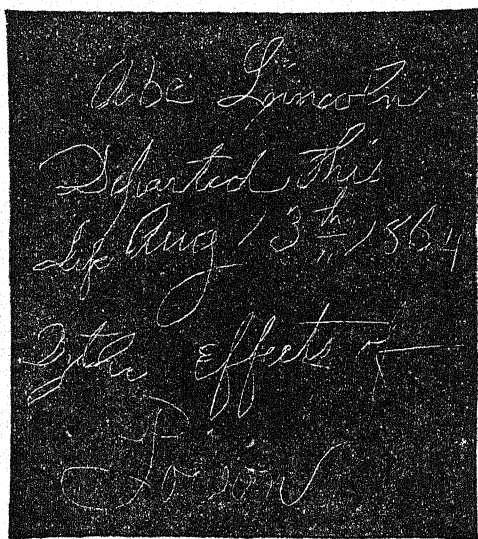 Abe Lincoln
Departed this
Life Aug 13th 1864
By the Effects of
Poison